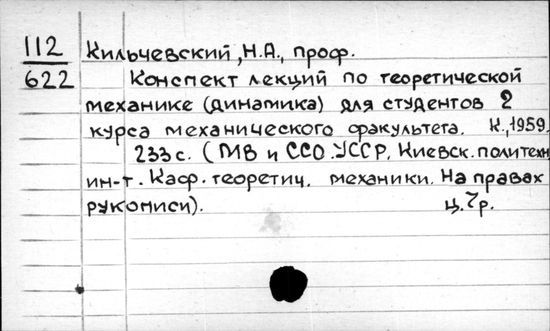 112
622
Кильчевский, Н.А., проф.
Конспект лекций по теоретической
механике (динамика) для студентов 2
курса механического факультета. К., 1959.
233 с. (МВ и ССО.УССР. Киевск.политехн
ин-т. Каф. теоретич. механики. На правах
рукописи).
ц. 7р.